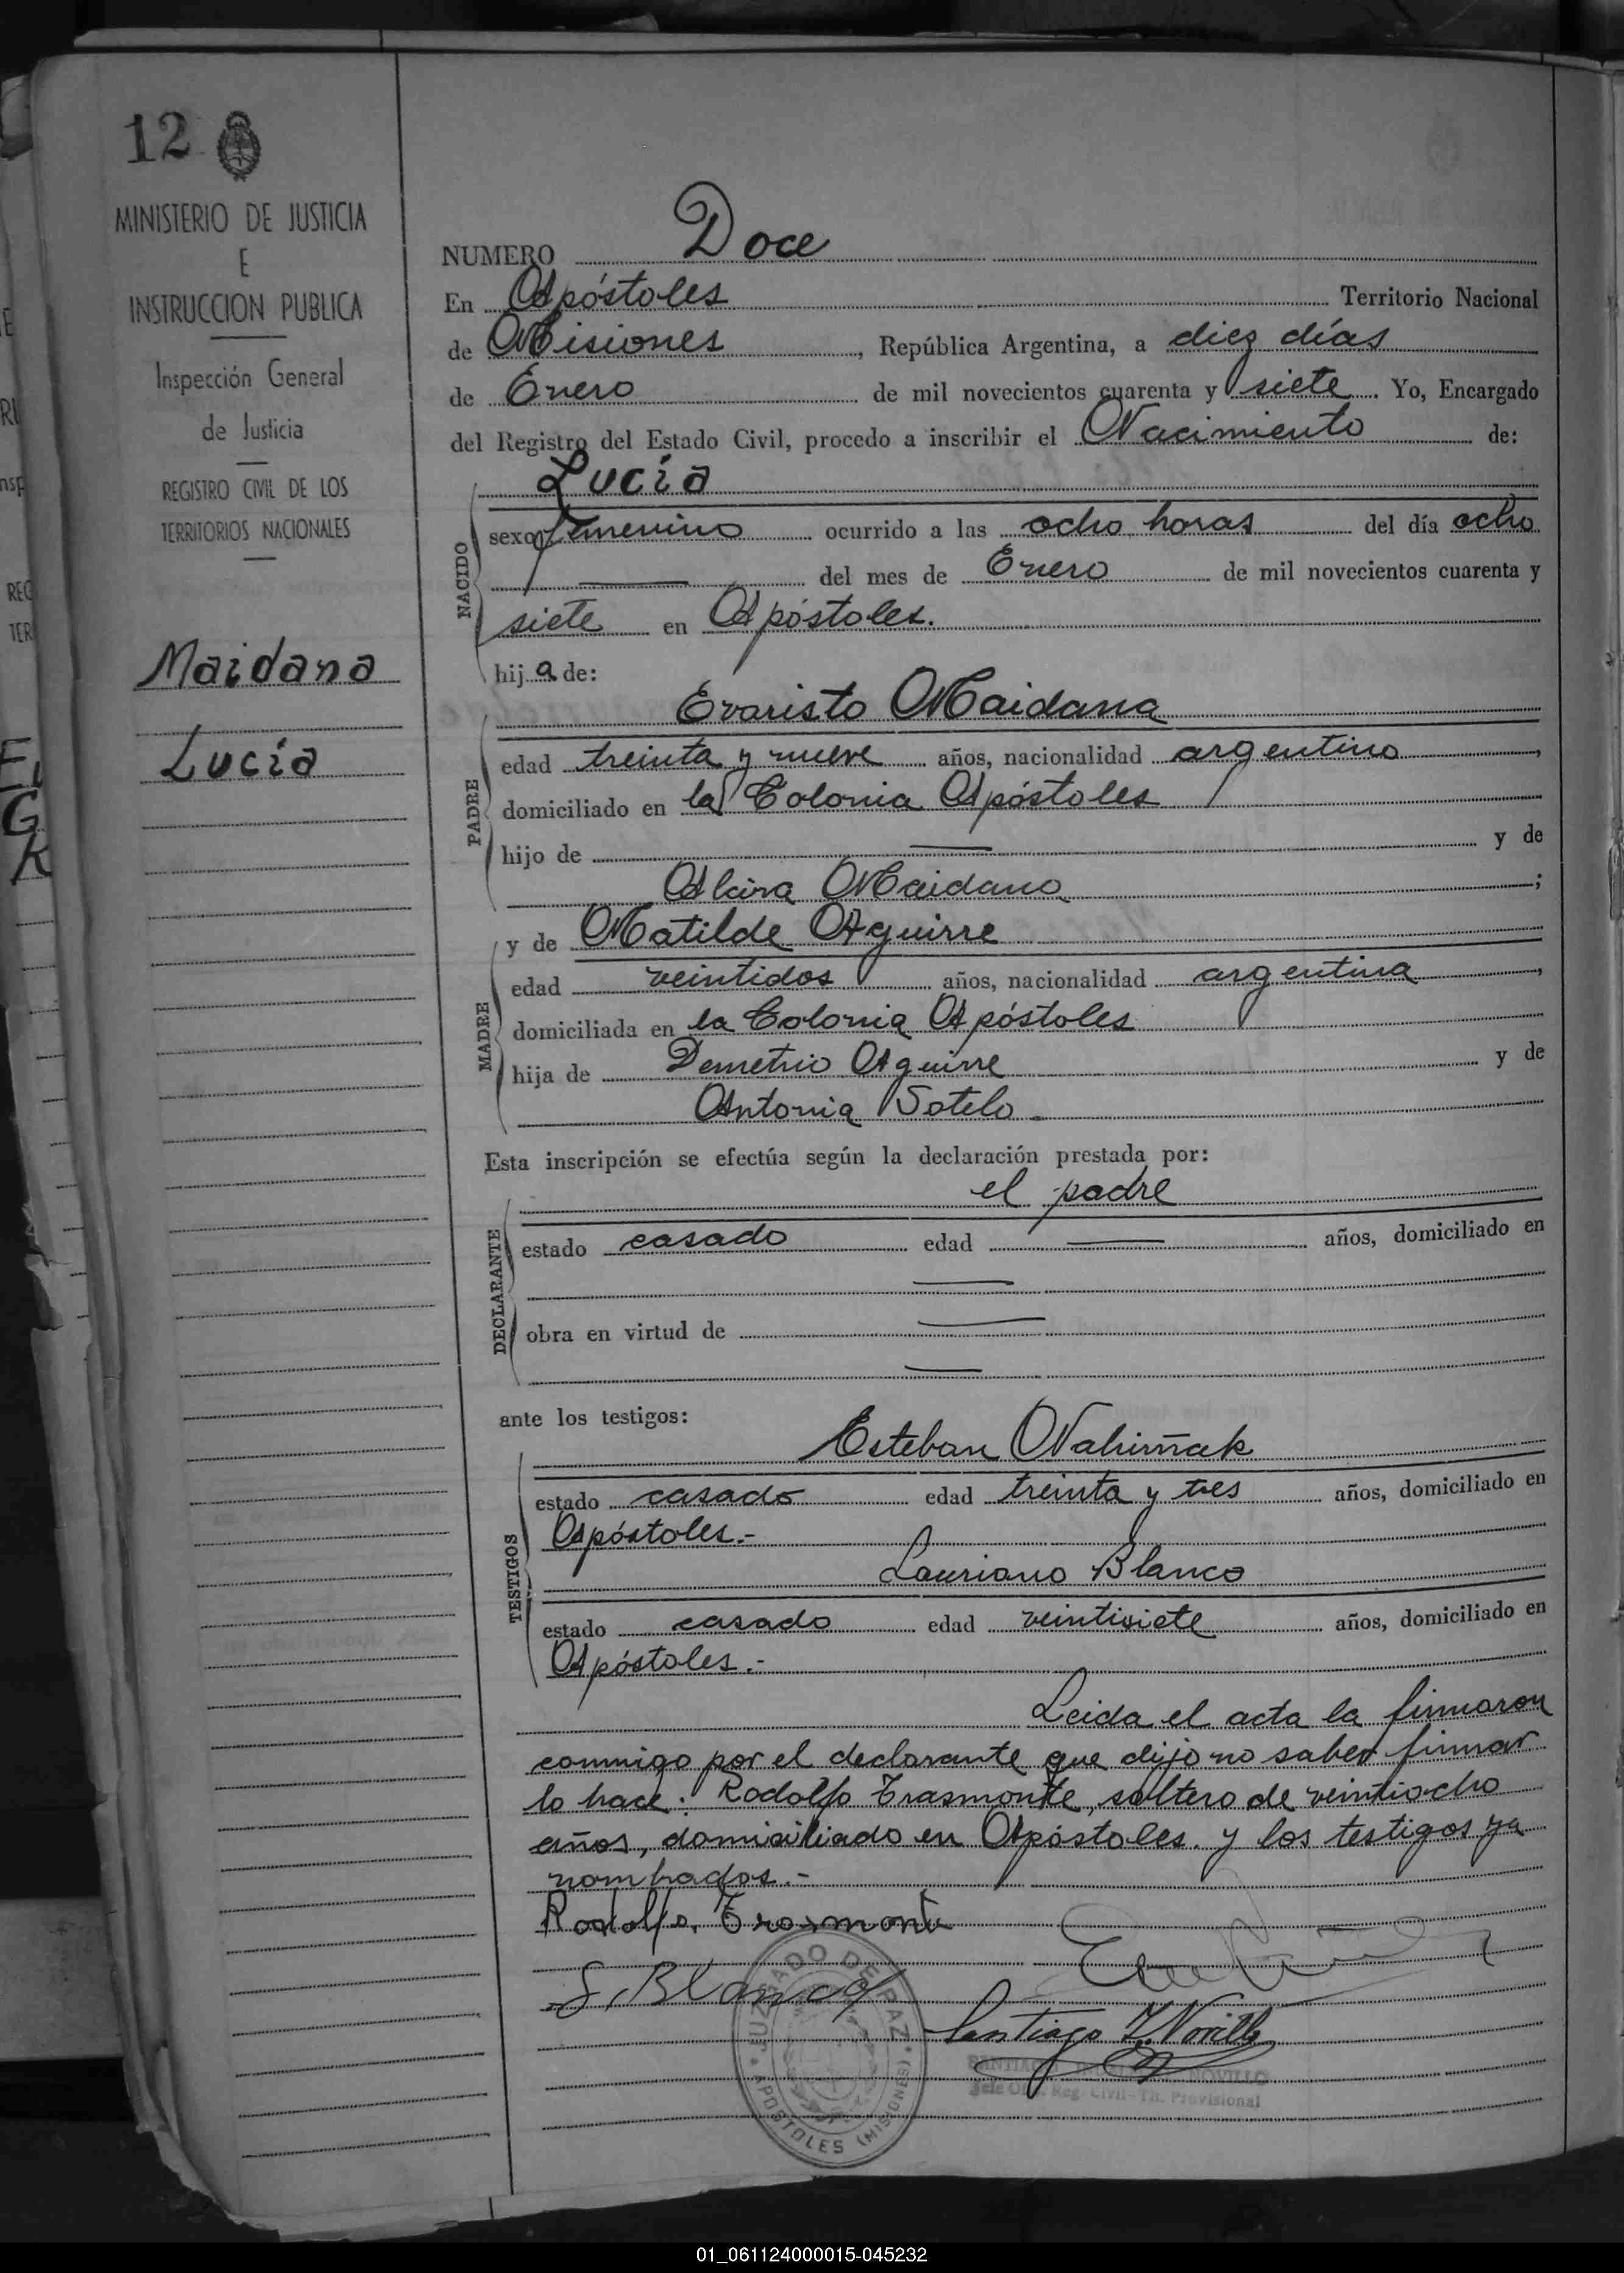 12
MINISTERIO DE JUSTICIA
E
INSTRUCCION PUBLICA
Inspección General
de Justicia
REGISTRO CIVIL DE LOS
TERRITORIOS NACIONALES
Maidana
Lucía
NUMERO Doce
En Apóstoles Territorio Nacional
de Misiones, República Argentina, a diez días
de Enero de mil novecientos cuarenta y siete. Yo, Encargado
del Registro del Estado Civil, procedo a inscribir el Nacimiento de:
Lucía
NACIDO
sexo femenino ocurrido a las ocho horas del día ocho
del mes de Enero de mil novecientos cuarenta y
siete en Apóstoles.
hija de:
Evaristo Maidana
PADRE
edad treinta y nueve años, nacionalidad argentino,
domiciliado en la Colonia Apóstoles
hijo de y de
Alcira Maidana;
y de Matilde Aguirre
MADRE
edad veintidos años, nacionalidad argentina,
domiciliada en la Colonia Apóstoles
hija de Demetrio Aguirre y de
Antonia Sotelo
Esta inscripción se efectúa según la declaración prestada por:
el padre
DECLARANTE
estado casado edad años, domiciliado en
obra en virtud de
ante los testigos:
Esteban
TESTIGOS
estado casado edad treinta y tres años, domiciliado en
Apóstoles.-
Lauriano Blanco
estado casado edad veintisiete años, domiciliado en
Apóstoles.-
Leida el acta la firmaron
conmigo por el declarante que dijo no saber firmar
lo hace: Rodolfo Trasmonte, soltero de veintiocho
años, domiciliado en Apóstoles. y los testigos ya
nombrados.-
Rodolfo Trasmonte
Blanco
Santiago Novillo
JUZGADO DE PAZ
APOSTOLES (MISIONES)
SANTIAGO NOVILLO
Jefe Reg. Civil - Tit. Provisional
01_061124000015-045232